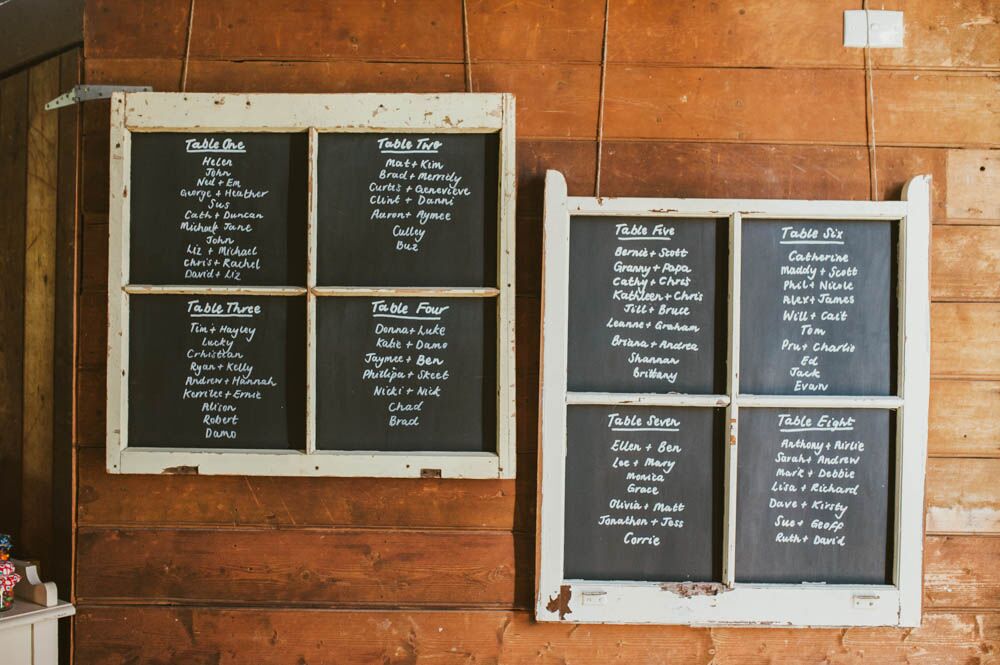 Table One
Helen
John
Neil + Em
George + Heather
Sus
Cath + Duncan
Michael Jane
John
Liz + Michael
Chris + Rachel
David + Liz
Table Two
Mat + Kim
Brad + Merridy
Curtis + Genevieve
Clint + Danni
Aaron + Aymee
Culley
Buz
Table Three
Tim + Hayley
Lucky
Crhistian
Ryan + Kelly
Andrew + Hannah
Kerrilee + Ernie
Alison
Robert
Damo
Table Four
Donna + Luke
Katie + Damo
Jaymee + Ben
Phillipa + Skeet
Nicki + Nick
Chad
Brad
Table Five
Bernie + Scott
Granny + Papa
Cathy + Chris
Kathleen + Chris
Jill + Bruce
Leanne + Graham
Briana + Andrea
Shannan
Brittany
Table Six
Catherine
Maddy + Scott
Phil + Nicole
Alex + James
Will + Cait
Tom
Pru + Charlie
Ed
Jack
Evan
Table Seven
Ellen + Ben
Lee + Mary
Monica
Grace
Olivia + Matt
Jonathon + Jess
Corrie
Table Eight
Anthony + Airlie
Sarah + Andrew
Mark + Debbie
Lisa + Richard
Dave + Kirsty
Sue + Geoff
Ruth + David